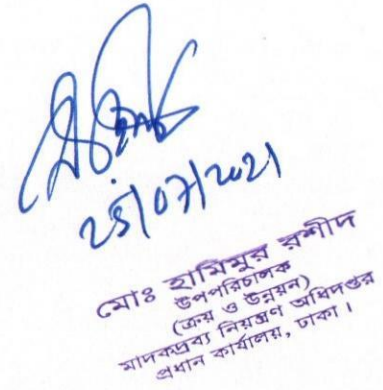 মোঃ হামিমুর রশীদ
উপপরিচালক
(ক্রয় ও উন্নয়ন)
মাদকদ্রব্য নিয়ন্ত্রণ অধিদপ্তর
প্রধান কার্যালয়, ঢাকা।